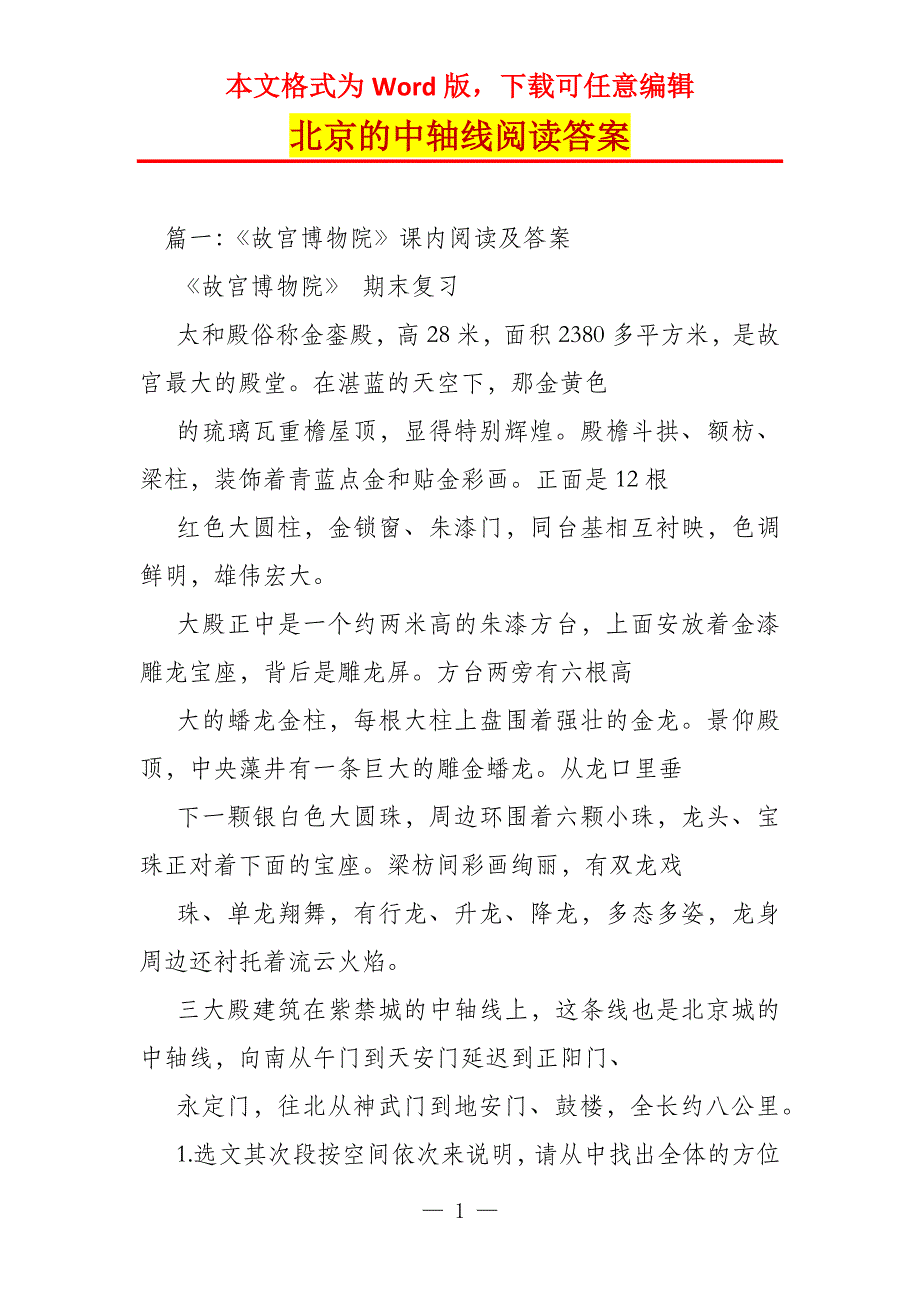 本文格式为 Word 版，下载可任意编辑
北京的中轴线阅读答案
篇一：《故宫博物院》课内阅读及答案
《故宫博物院》 期末复习
太和殿俗称金銮殿，高 28 米，面积 2380 多平方米，是故
宫最大的殿堂。在湛蓝的天空下，那金黄色
的琉璃瓦重檐屋顶，显得特别辉煌。殿檐斗拱、额枋、
梁柱，装饰着青蓝点金和贴金彩画。正面是 12 根
红色大圆柱，金锁窗、朱漆门，同台基相互衬映，色调
鲜明，雄伟宏大。
大殿正中是一个约两米高的朱漆方台，上面安放着金漆
雕龙宝座，背后是雕龙屏。方台两旁有六根高
大的蟠龙金柱，每根大柱上盘围着强壮的金龙。景仰殿
顶，中央藻井有一条巨大的雕金蟠龙。从龙口里垂
下一颗银白色大圆珠，周边环围着六颗小珠，龙头、宝
珠正对着下面的宝座。梁枋间彩画绚丽，有双龙戏
珠、单龙翔舞，有行龙、升龙、降龙，多态多姿，龙身
周边还衬托着流云火焰。
三大殿建筑在紫禁城的中轴线上，这条线也是北京城的
中轴线，向南从午门到天安门延迟到正阳门、
永定门，往北从神武门到地安门、鼓楼，全长约八公里。
1.选文其次段按空间依次来说明，请从中找出全体的方位
— 1 —